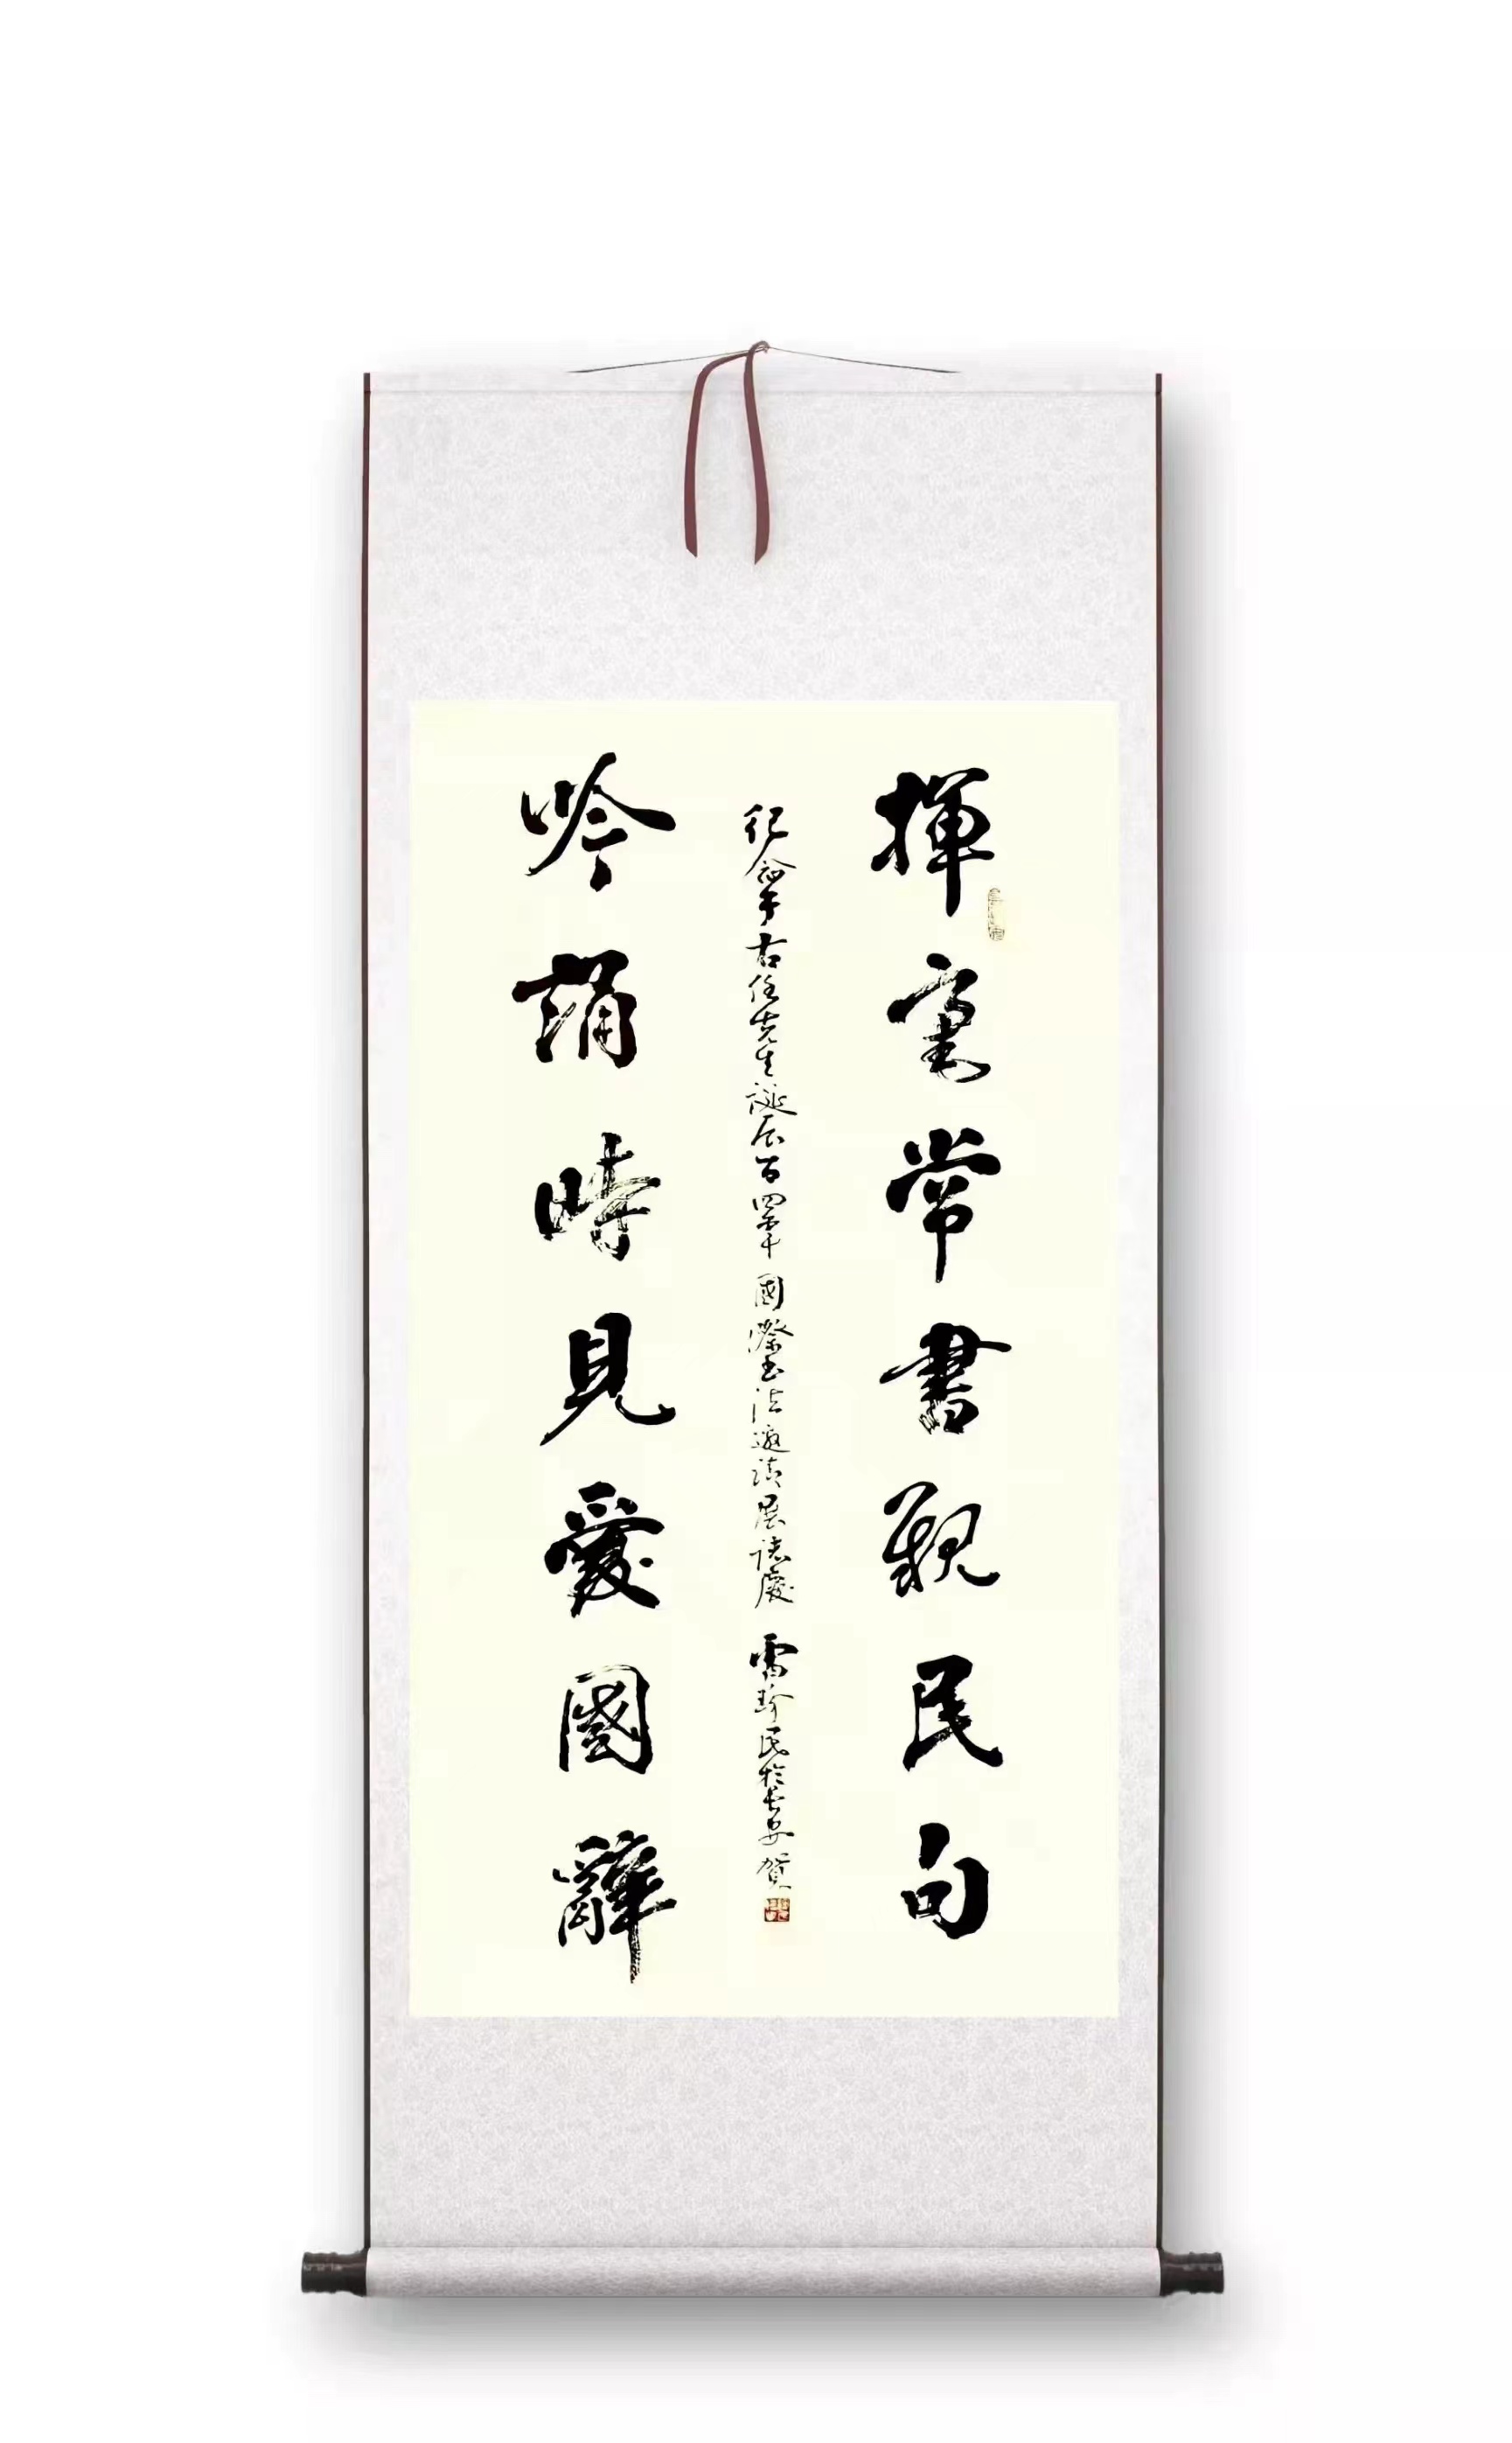 揮毫常書親民句
紀念于右任先生誕辰百四十年國際書法邀請展誌慶 雷珍民於長安賀
吟誦時見愛國辭